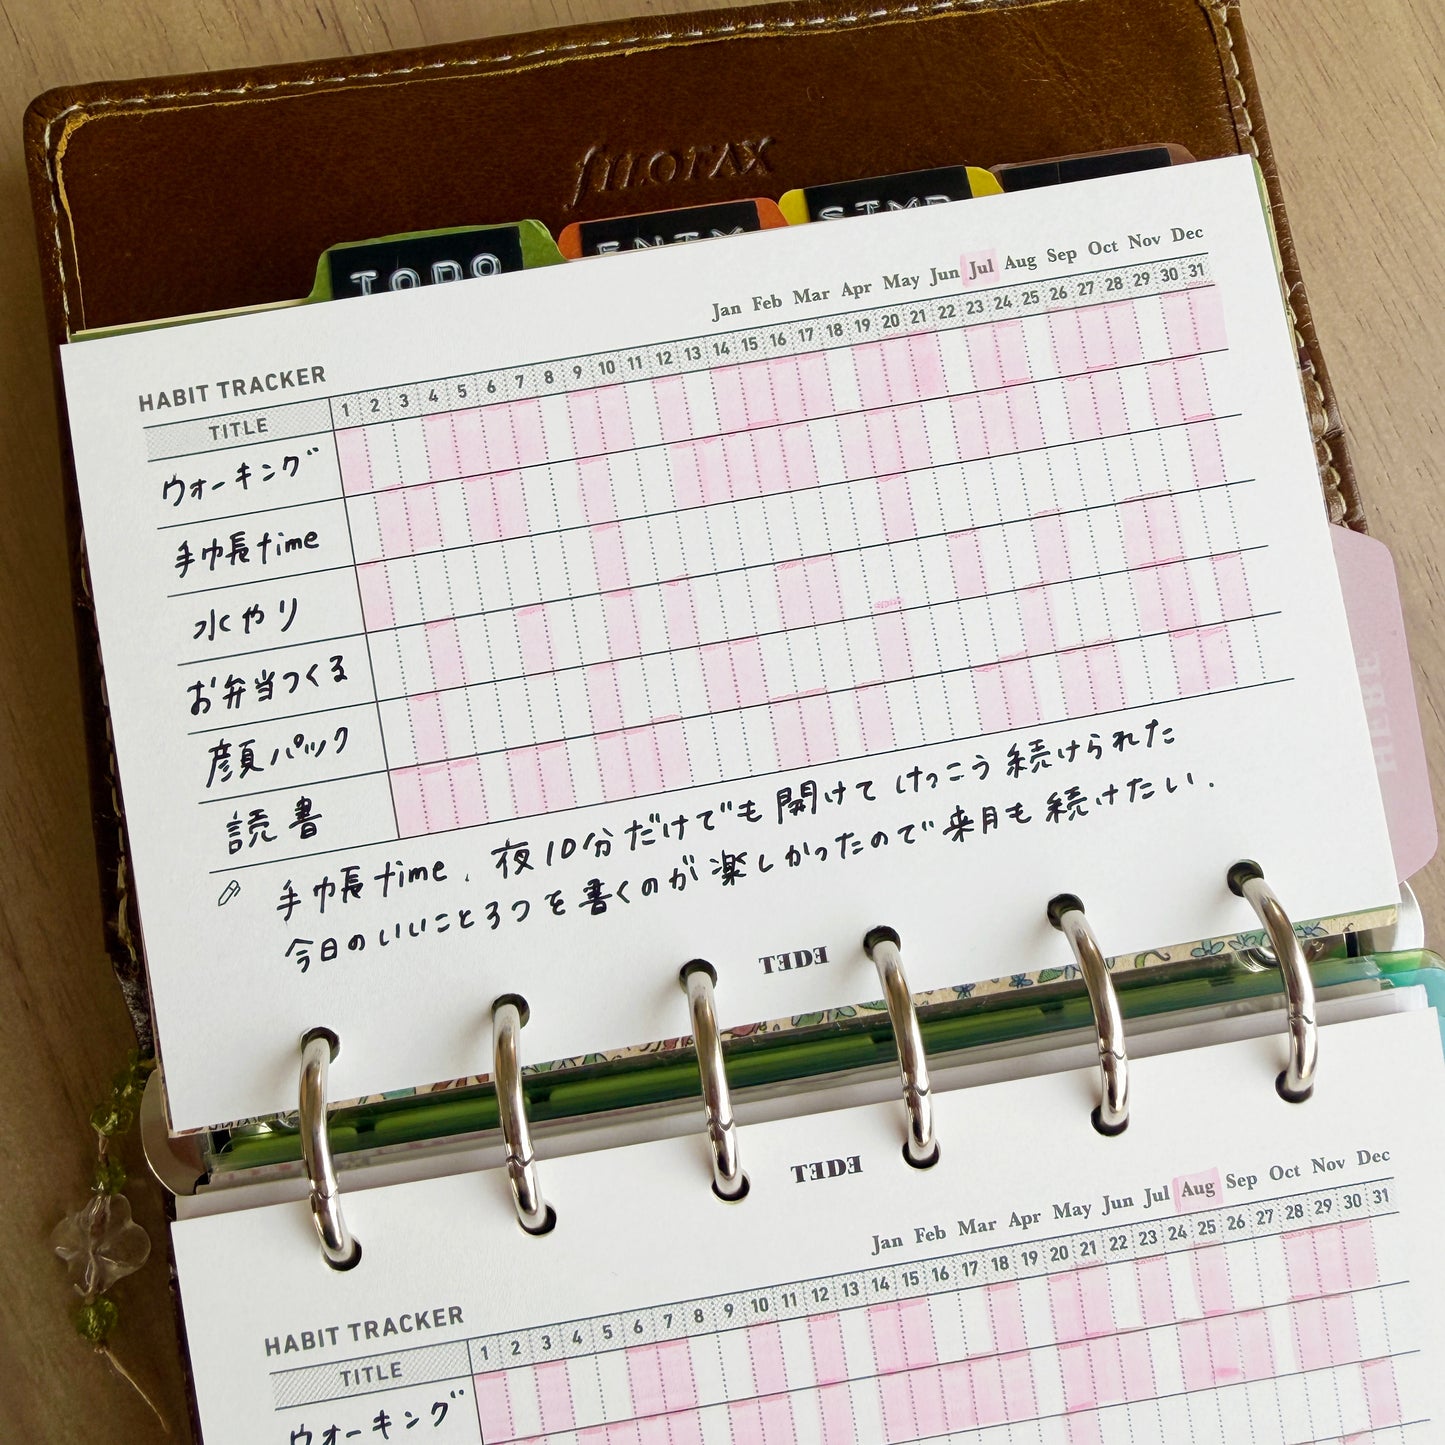 FILOFAX
TODO
Jan Feb Mar Apr May Jun Jul Aug Sep Oct Nov Dec
HABIT TRACKER
TITLE 1 2 3 4 5 6 7 8 9 10 11 12 13 14 15 16 17 18 19 20 21 22 23 24 25 26 27 28 29 30 31
ウォーキング
手巾長time
水やり
お弁当つくる
顔パック
読書
手巾長time、夜10分だけでも開けてけっこう続けられた
今日のいいこと3つを書くのが楽しかったので来月も続けたい.
TEDE
TEDE
Jan Feb Mar Apr May Jun Jul Aug Sep Oct Nov Dec
HABIT TRACKER
TITLE 1 2 3 4 5 6 7 8 9 10 11 12 13 14 15 16 17 18 19 20 21 22 23 24 25 26 27 28 29 30 31
ウォーキング